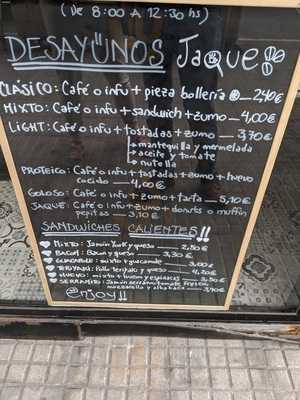 (De 8:00 A 12:30 hs)
DESAYUNOS Jaque!
CLÁSICO: Café o infu + pieza bollería — 2,40€
MIXTO: Café o infu + sandwich + zumo — 4,00€
LIGHT: Café o infu + tostadas + zumo — 3,70€
mantequilla y mermelada
aceite y tomate
nutella
PROTEICO: Café o infu + tostadas + zumo + huevo
cocido — 4,00€
GOLOSO: Café o infu + zumo + tarta — 5,10€
JAQUE: Café o infu + zumo + donuts o muffin
pepitas — 3,10€
SANDWICHES CALIENTES!!
MIXTO: Jamón York y queso — 2,80€
BACON: Bacon y queso — 3,30€
GUACAMOLE: mixto + guacamole — 3,00€
TERIYAKI: Pollo teriyaki y queso — 4,20€
HUEVO: mixto + huevo y especias — 3,50€
SERRANITO: Jamón serrano, tomate fresco,
mozzarella y albahaca — 3,90€
Enjoy!!